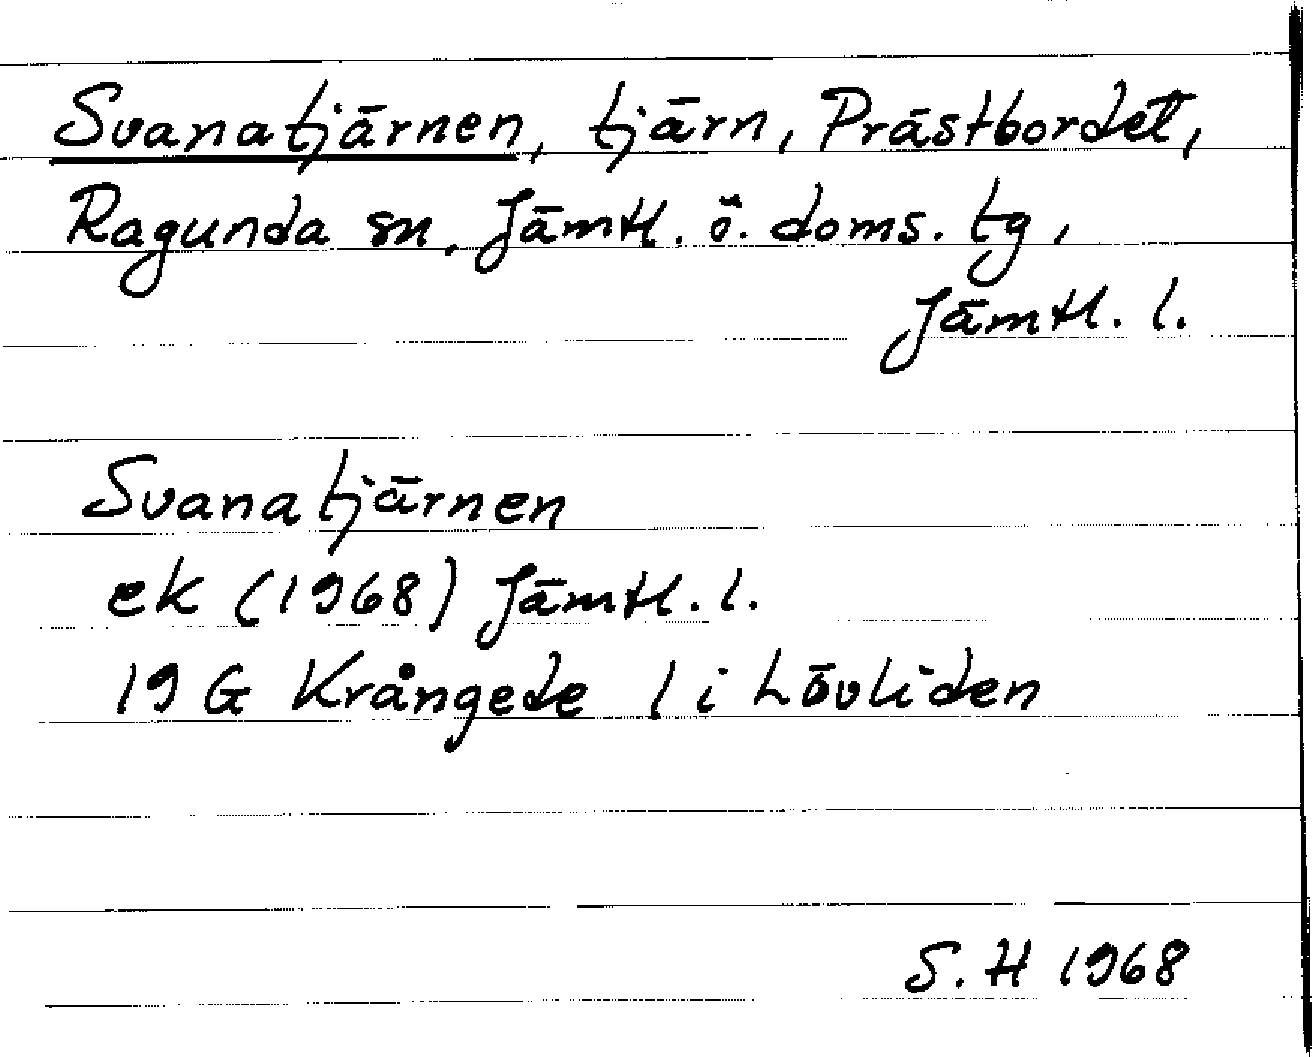 Svanatjärnen, tjärn, Prästbordet,
Ragunda sn, Jämtl. ö. doms. tg,
Jämtl. l.
Svanatjärnen
ek (1968) Jämtl. l.
19 G Krångede 1 i Lövliden
S. H 1968